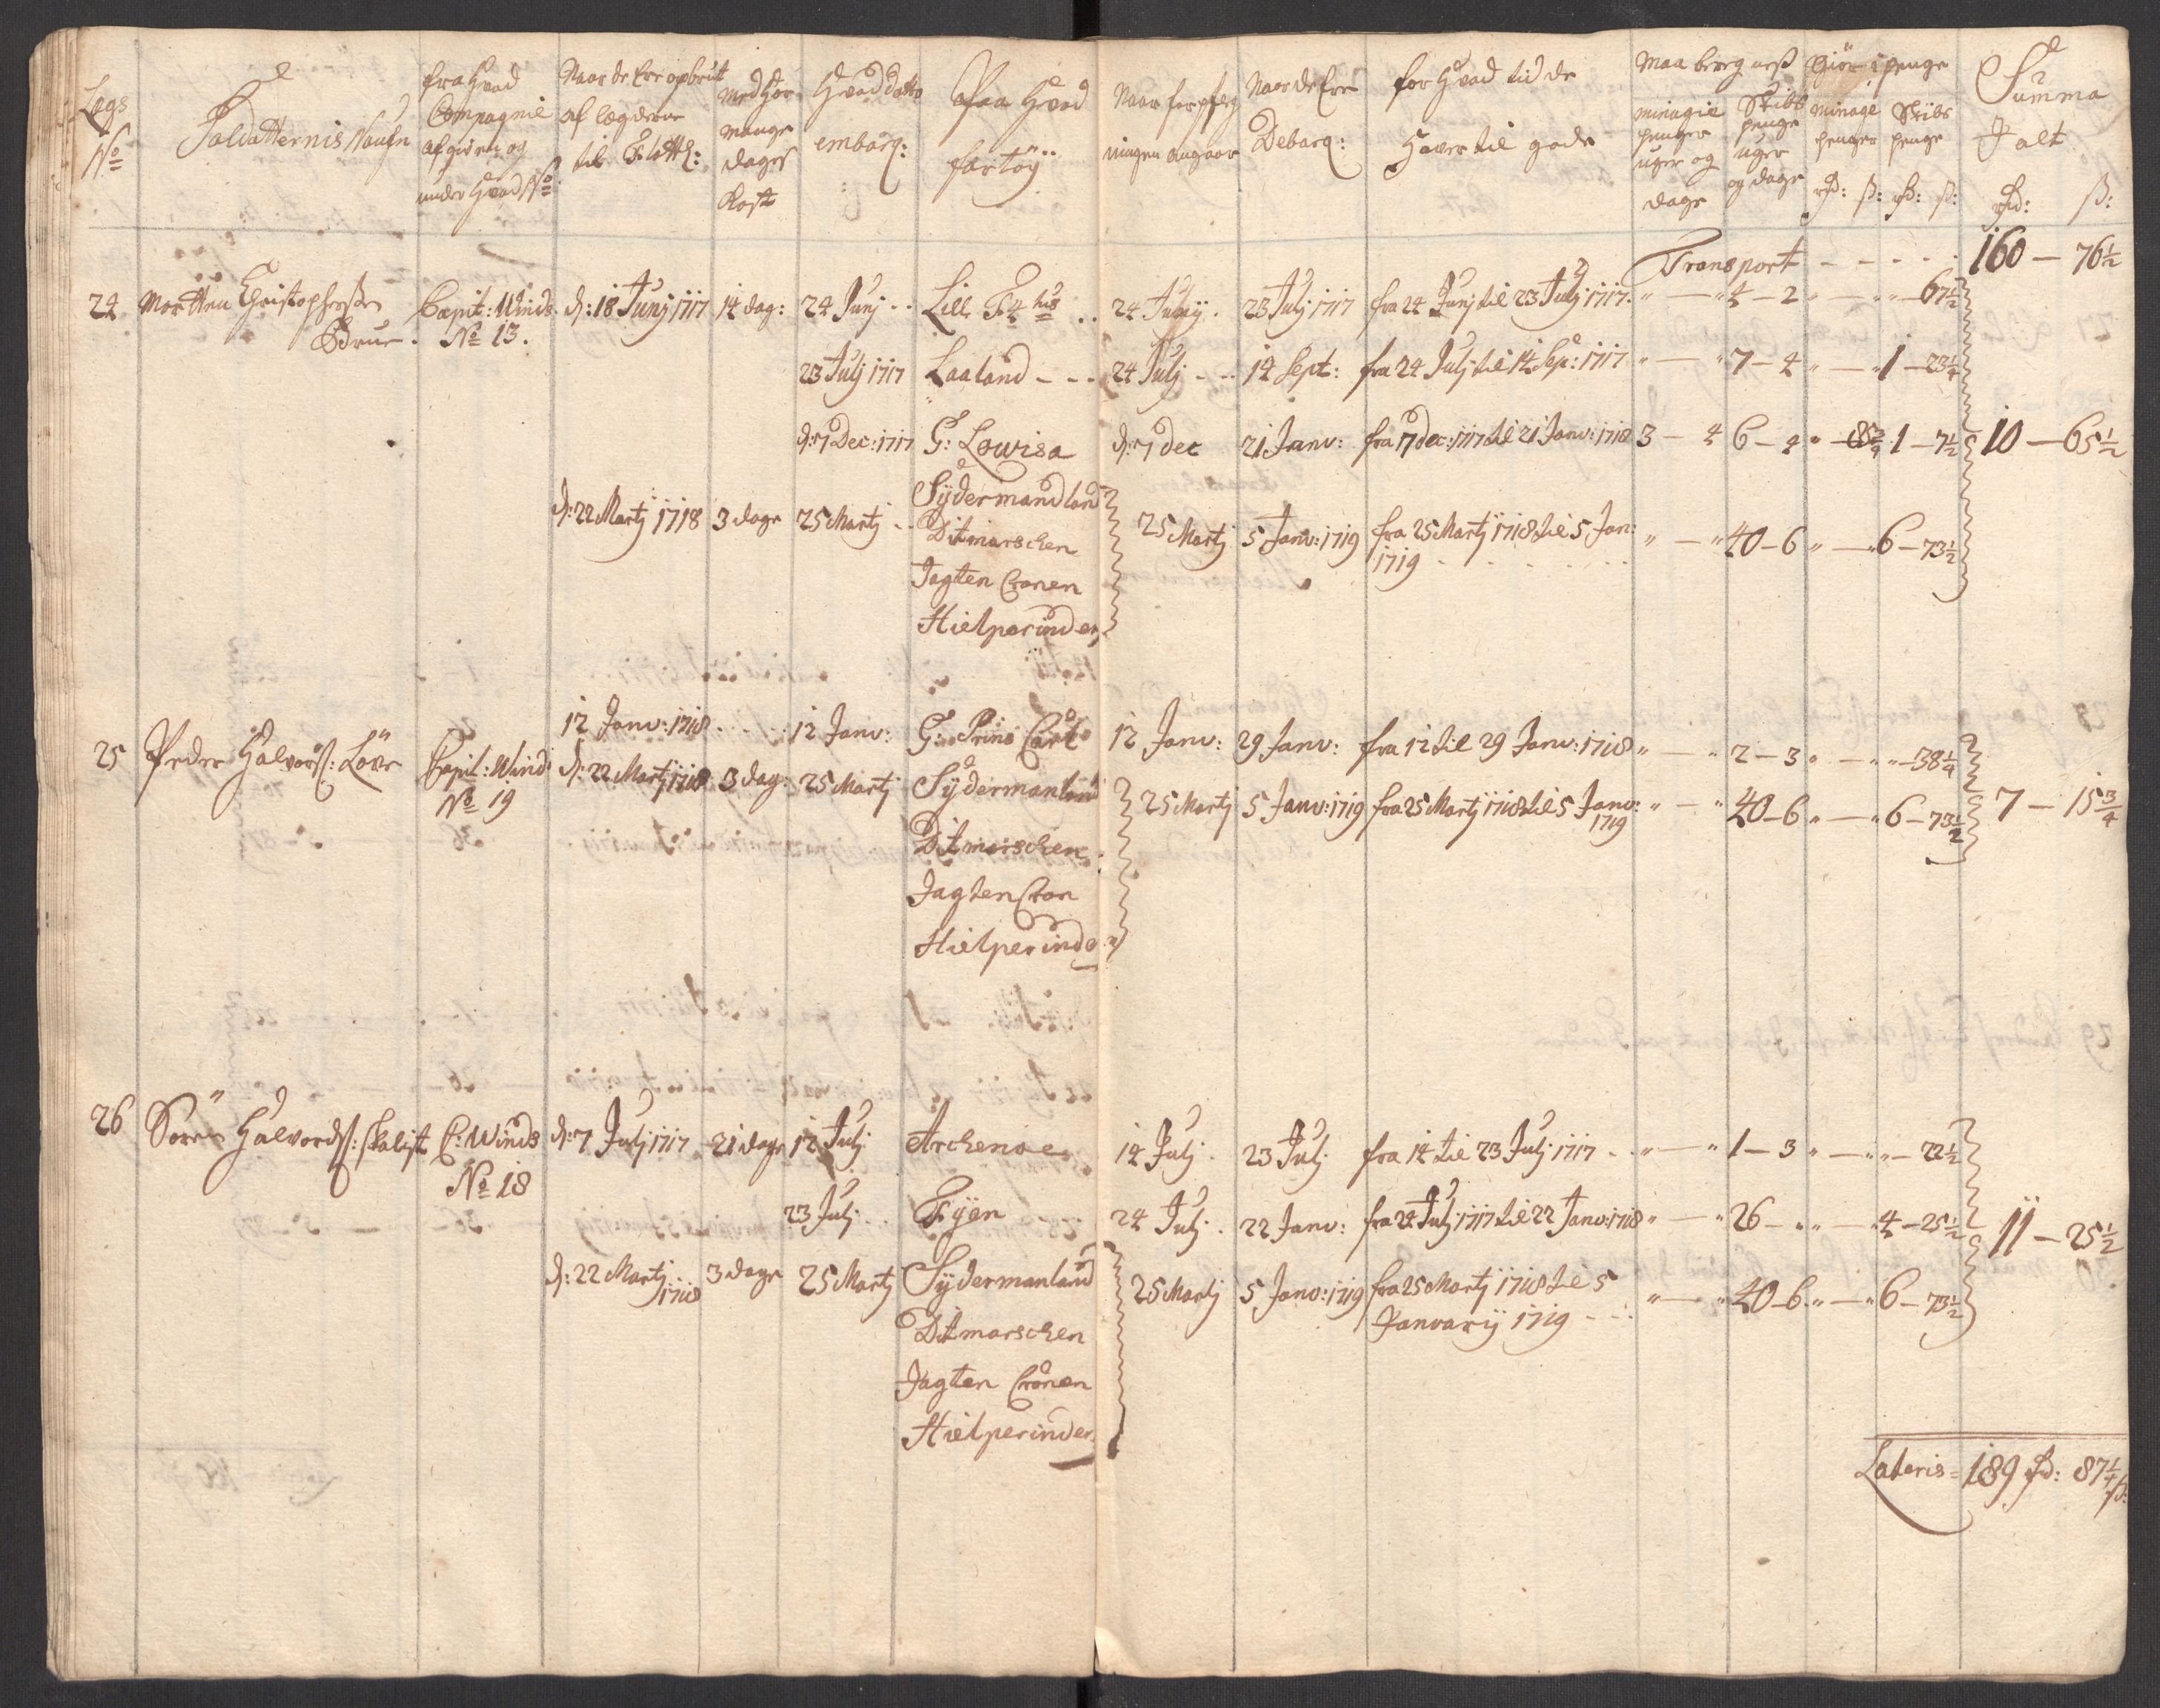 Lægs No
Soldatternis Naufn
fra Hvad Compagnie afgiven og under Hvad No
Naar de Ere opbrut af lægderne til Flotte:
Med Hor mange dages Kost
Hvad Datto embarq:
Paa Hvad fartöÿ
Naar forpfleg ningen angaar
Naar de Ere Debarq:
for Hvad tid de Haver til gode
Maa bereg nes
minagie penger uger og dage
Skibs penge uger og dage
Giör i penge
minage penger rd: ß:
Skibs penge rd: ß:
Summa J alt
rd: ß:
Transport - - - - - 160 — 76½
24 Morten Christophersen Capit: Winds d: 18 Junj 1717 14 dag: 24 Junj - - Lill F 24 Junij. 23 Julj 1717 fra 24 Junj til 23 Julj 1717. " — " 4 — 2 " — " " — 67½
Brue. No 13.
23 Julj 1717 Laaland - - - 24 Julj - - 14 Sept: fra 24 Julj til 14 Sep: 1717 " — " 7 — 4 " — " 1 — 23¼
d: 7 Dec: 1717 G: Lowisa d: 7 Dec 21 Janv: fra 7 Dec: 1717 til 21 Janv: 1718 3 — 4 6 — 4 " — 85¾ 1 — 7½ 10 — 65½
Sÿdermandland
d: 22 Martj 1718 3 dage 25 Martj - - Ditmarschen 25 Martj 5 Janv: 1719 fra 25 Martj 1718 til 5 Jan: " — " 40 — 6 " — " 6 — 73½
1719 - - - - - -
Jagten Cronen
Hielperinden
12 Janv: 1718 - - - 12 Janv: G: Prins Carl 12 Janv: 29 Janv: fra 12 til 29 Janv: 1718 " — " 2 — 3 " — " " — 38¼
25 Peder Halvorß: Löve Capit: Winds d: 22 Martj 1718 3 dag: 25 Martj Sÿdermanland 25 Martj 5 Janv: 1719 fra 25 Martj 1718 til 5 Janv: 1719 " — " 40 — 6 " — " 6 — 73½ 7 — 15¾
No 19
Ditmarschen
Jagten Cron
Hielperinden
26 Sören Halvordß: C: Winds d: 7 Julj 1717 21 dage 12 Julj Archenoe 14 Julj. 23 Julj fra 14 til 23 Julj 1717 - " — " 1 — 3 " — " " — 22½
No 18
23 Julj. Fÿen 24 Julj. 22 Janv: fra 24 Julj 1717 til 22 Janv: 1718 " — " 26 — " " — " 4 — 25½ 11 — 25½
d: 22 Martj 1718 3 dage 25 Martj Sÿdermanland 25 Martj 5 Janv: 1719 fra 25 Martj 1718 til 5 " — " 40 — 6 " — " 6 — 73½
Januarij 1719 - -
Ditmarschen
Jagten Cronen
Hielperinden
Lateris = 189 rd: 87¼ ß: